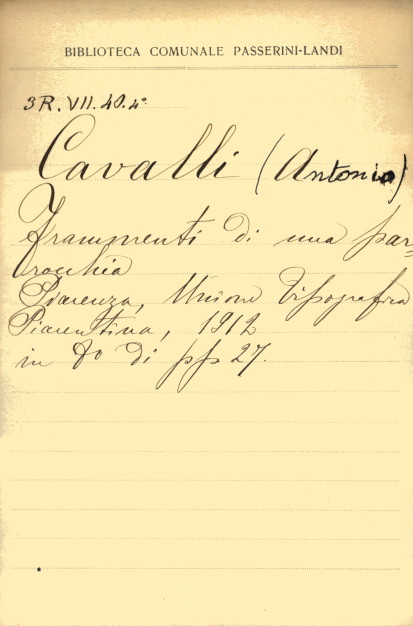 BIBLIOTECA COMUNALE PASSERINI-LANDI
3R.VII.40.4°
Cavalli (Antonio)
Frammenti di una par=
rocchia
Piacenza, Unione Tipografica
Piacentina, 1912
in 8° di pp 27.